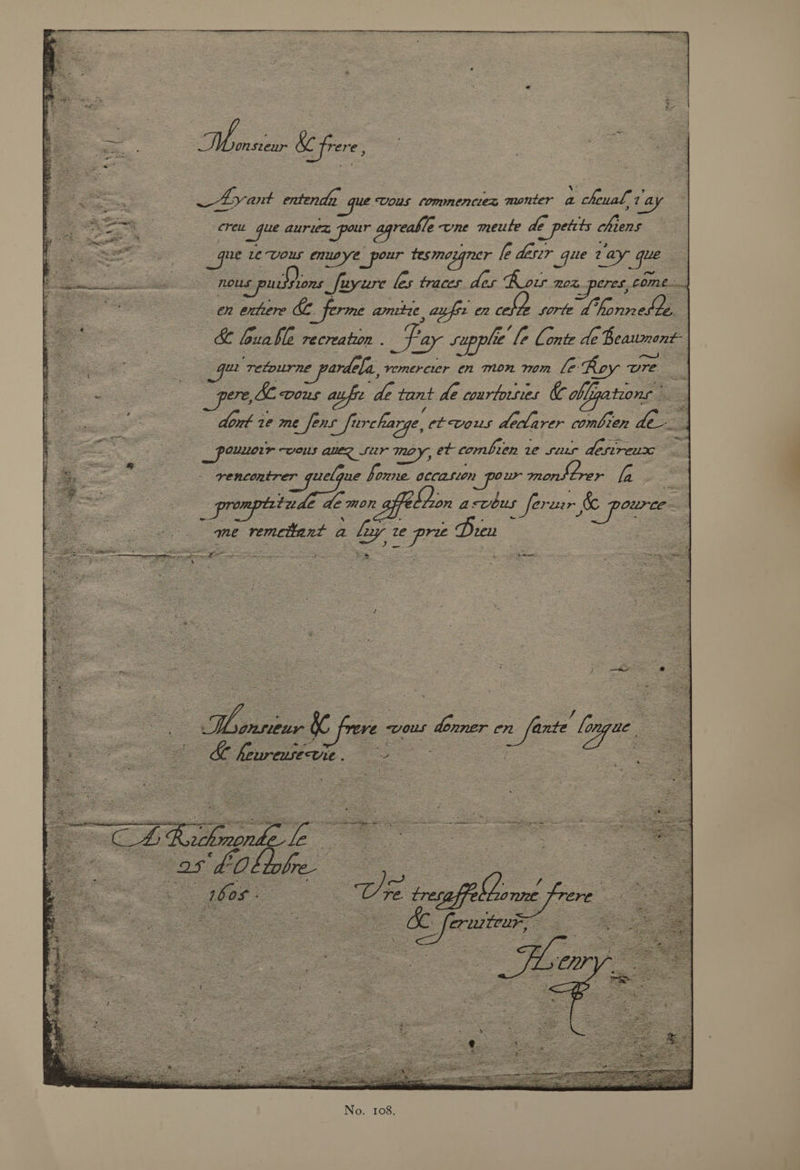 Monsieur & frere,
Ayant entendu que vous commenciez monter a cheual, i'ay
creu que auriez pour agreable vne meute de petits chiens
que ie vous enuoye pour tesmoigner le desir que i'ay que
nous puissions suyure les traces des Rois noz peres, come
en entiere & ferme amitie, aussi en ceste sorte d'honneste
& louable recreation. J'ay supplié le Conte de Beaumont
qui retourne pardela, remercier en mon nom le Roy vre
pere, & vous aussi de tant de courtoisies & obligations
dont ie me sens surcharge, et vous declarer combien de
pouuoir vous auez sur moy, et combien ie suis desireux
rencontrer quelque bonne occasion pour monstrer la
promptitude de mon affection a vous seruir & pource
me remettant a luy ie prie Dieu
Monsieur & frere vous donner en santé longue
& heureuse vie.
A Richmonde le
25 d'Octobre
1605.
Vre tresaffectionné frere
& seruiteur,
Henry
No. 108.